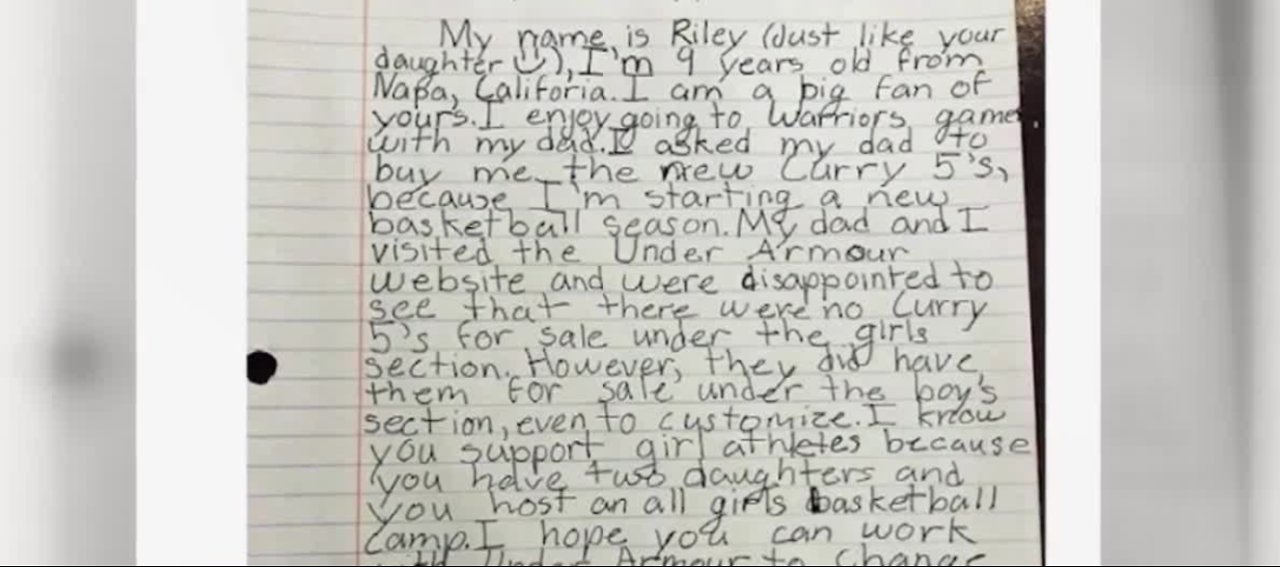 My name is Riley (Just like your
daughter ☺), I'm 9 years old from
Napa, Califoria. I am a big fan of
yours. I enjoy going to Warriors game
with my dad. I asked my dad to
buy me the new Curry 5's,
because I'm starting a new
basketball season. My dad and I
visited the Under Armour
website and were disappointed to
see that there were no Curry
5's for sale under the girls
section. However, they did have
them for sale under the boy's
section, even to customize. I know
you support girl athletes because
you have two daughters and
you host an all girls basketball
camp. I hope you can work
with Under Armour to change